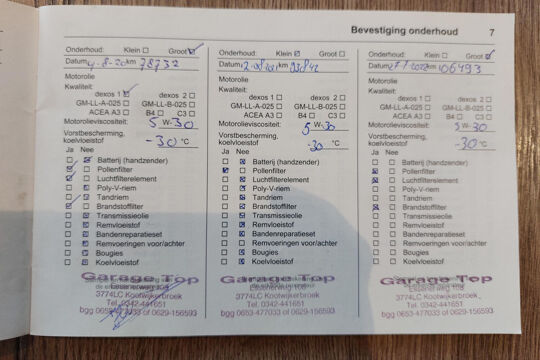 Bevestiging onderhoud 7
Onderhoud: Klein ☐ Groot ☑
Datum 4-8-20 km 78732
Motorolie
Kwaliteit:
dexos 1 ☑ dexos 2 ☐
GM-LL-A-025 ☐ GM-LL-B-025 ☐
ACEA A3 ☐ B4 ☐ C3 ☐
Motorolieviscositeit: 5 W-30
Vorstbescherming,
koelvloeistof -30 °C
Ja Nee
Batterij (handzender)
Pollenfilter
Luchtfilterelement
Poly-V-riem
Tandriem
Brandstoffilter
Transmissieolie
Remvloeistof
Bandenreparatieset
Remvoeringen voor/achter
Bougies
Koelvloeistof
Garage Top
3774LC Kootwijkerbroek
Tel. 0342-441651
bgg 0653-477033 of 0629-156593
Onderhoud: Klein ☑ Groot ☐
Datum km
Motorolie
Kwaliteit:
dexos 1 ☐ dexos 2 ☐
GM-LL-A-025 ☐ GM-LL-B-025 ☐
ACEA A3 ☐ B4 ☐ C3 ☐
Motorolieviscositeit: 5 W-30
Vorstbescherming,
koelvloeistof -30 °C
Ja Nee
Batterij (handzender)
Pollenfilter
Luchtfilterelement
Poly-V-riem
Tandriem
Brandstoffilter
Transmissieolie
Remvloeistof
Bandenreparatieset
Remvoeringen voor/achter
Bougies
Koelvloeistof
Garage Top
3774LC Kootwijkerbroek
Tel. 0342-441651
bgg 0653-477033 of 0629-156593
Onderhoud: Klein ☐ Groot ☑
Datum km 106493
Motorolie
Kwaliteit:
dexos 1 ☐ dexos 2 ☐
GM-LL-A-025 ☐ GM-LL-B-025 ☐
ACEA A3 ☐ B4 ☐ C3 ☐
Motorolieviscositeit: 5 W-30
Vorstbescherming,
koelvloeistof -30 °C
Ja Nee
Batterij (handzender)
Pollenfilter
Luchtfilterelement
Poly-V-riem
Tandriem
Brandstoffilter
Transmissieolie
Remvloeistof
Bandenreparatieset
Remvoeringen voor/achter
Bougies
Koelvloeistof
Garage Top
3774LC Kootwijkerbroek
Tel. 0342-441651
bgg 0653-477033 of 0629-156593